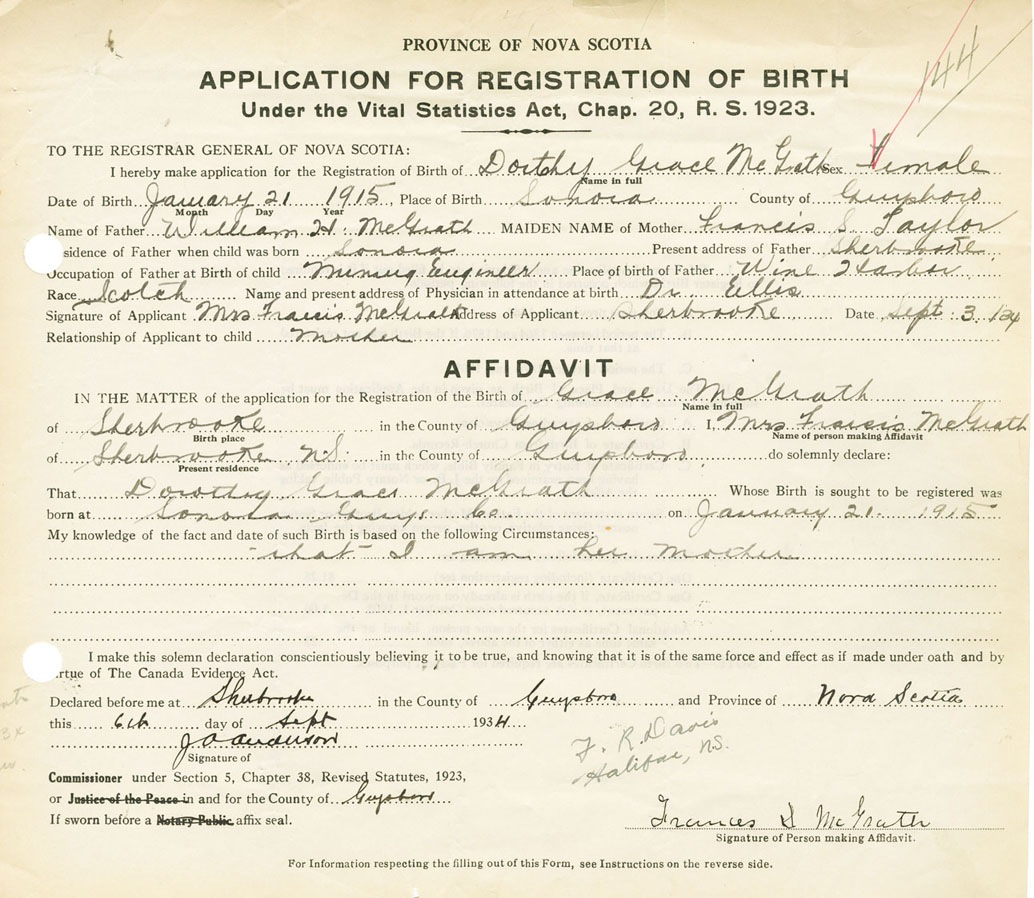 144
PROVINCE OF NOVA SCOTIA
APPLICATION FOR REGISTRATION OF BIRTH
Under the Vital Statistics Act, Chap. 20, R. S. 1923.
TO THE REGISTRAR GENERAL OF NOVA SCOTIA:
I hereby make application for the Registration of Birth of Dortthy Grace McGrath Sex Female
Name in full
Date of Birth January 21 1915, Place of Birth Sonora County of Guysboro
Month Day Year
Name of Father William H. McGrath MAIDEN NAME of Mother Francis S Taylor
sidence of Father when child was born Sonora Present address of Father Sherbrooke
Occupation of Father at Birth of child Mining Engineer Place of birth of Father Wine Harbor
Race Scotch Name and present address of Physician in attendance at birth Dr Ellis
Signature of Applicant Mrs Francis McGrath ddress of Applicant Sherbrooke Date Sept 3/34
Relationship of Applicant to child Mother
AFFIDAVIT
IN THE MATTER of the application for the Registration of the Birth of Grace McGrath
Name in full
of Sherbrooke in the County of Guysboro I, Mrs Francis McGrath
Birth place Name of person making Affidavit
of Sherbrooke N.S. in the County of Guysboro do solemnly declare:
Present residence
That Dorothy Grace McGrath Whose Birth is sought to be registered was
born at Sonora Guys Co. on January 21. 1915
My knowledge of the fact and date of such Birth is based on the following Circumstances:
- that I am her mother
I make this solemn declaration conscientiously believing it to be true, and knowing that it is of the same force and effect as if made under oath and by
rtue of The Canada Evidence Act.
Declared before me at Sherbrooke in the County of Guysboro and Province of Nova Scotia
this 6th day of Sept 1934
J A Anderson
Signature of
F. R. Davis
Halifax, NS.
Commissioner under Section 5, Chapter 38, Revised Statutes, 1923,
or Justice of the Peace in and for the County of Guysboro
If sworn before a Notary Public affix seal.
Frances S McGrath
Signature of Person making Affidavit.
For Information respecting the filling out of this Form, see Instructions on the reverse side.